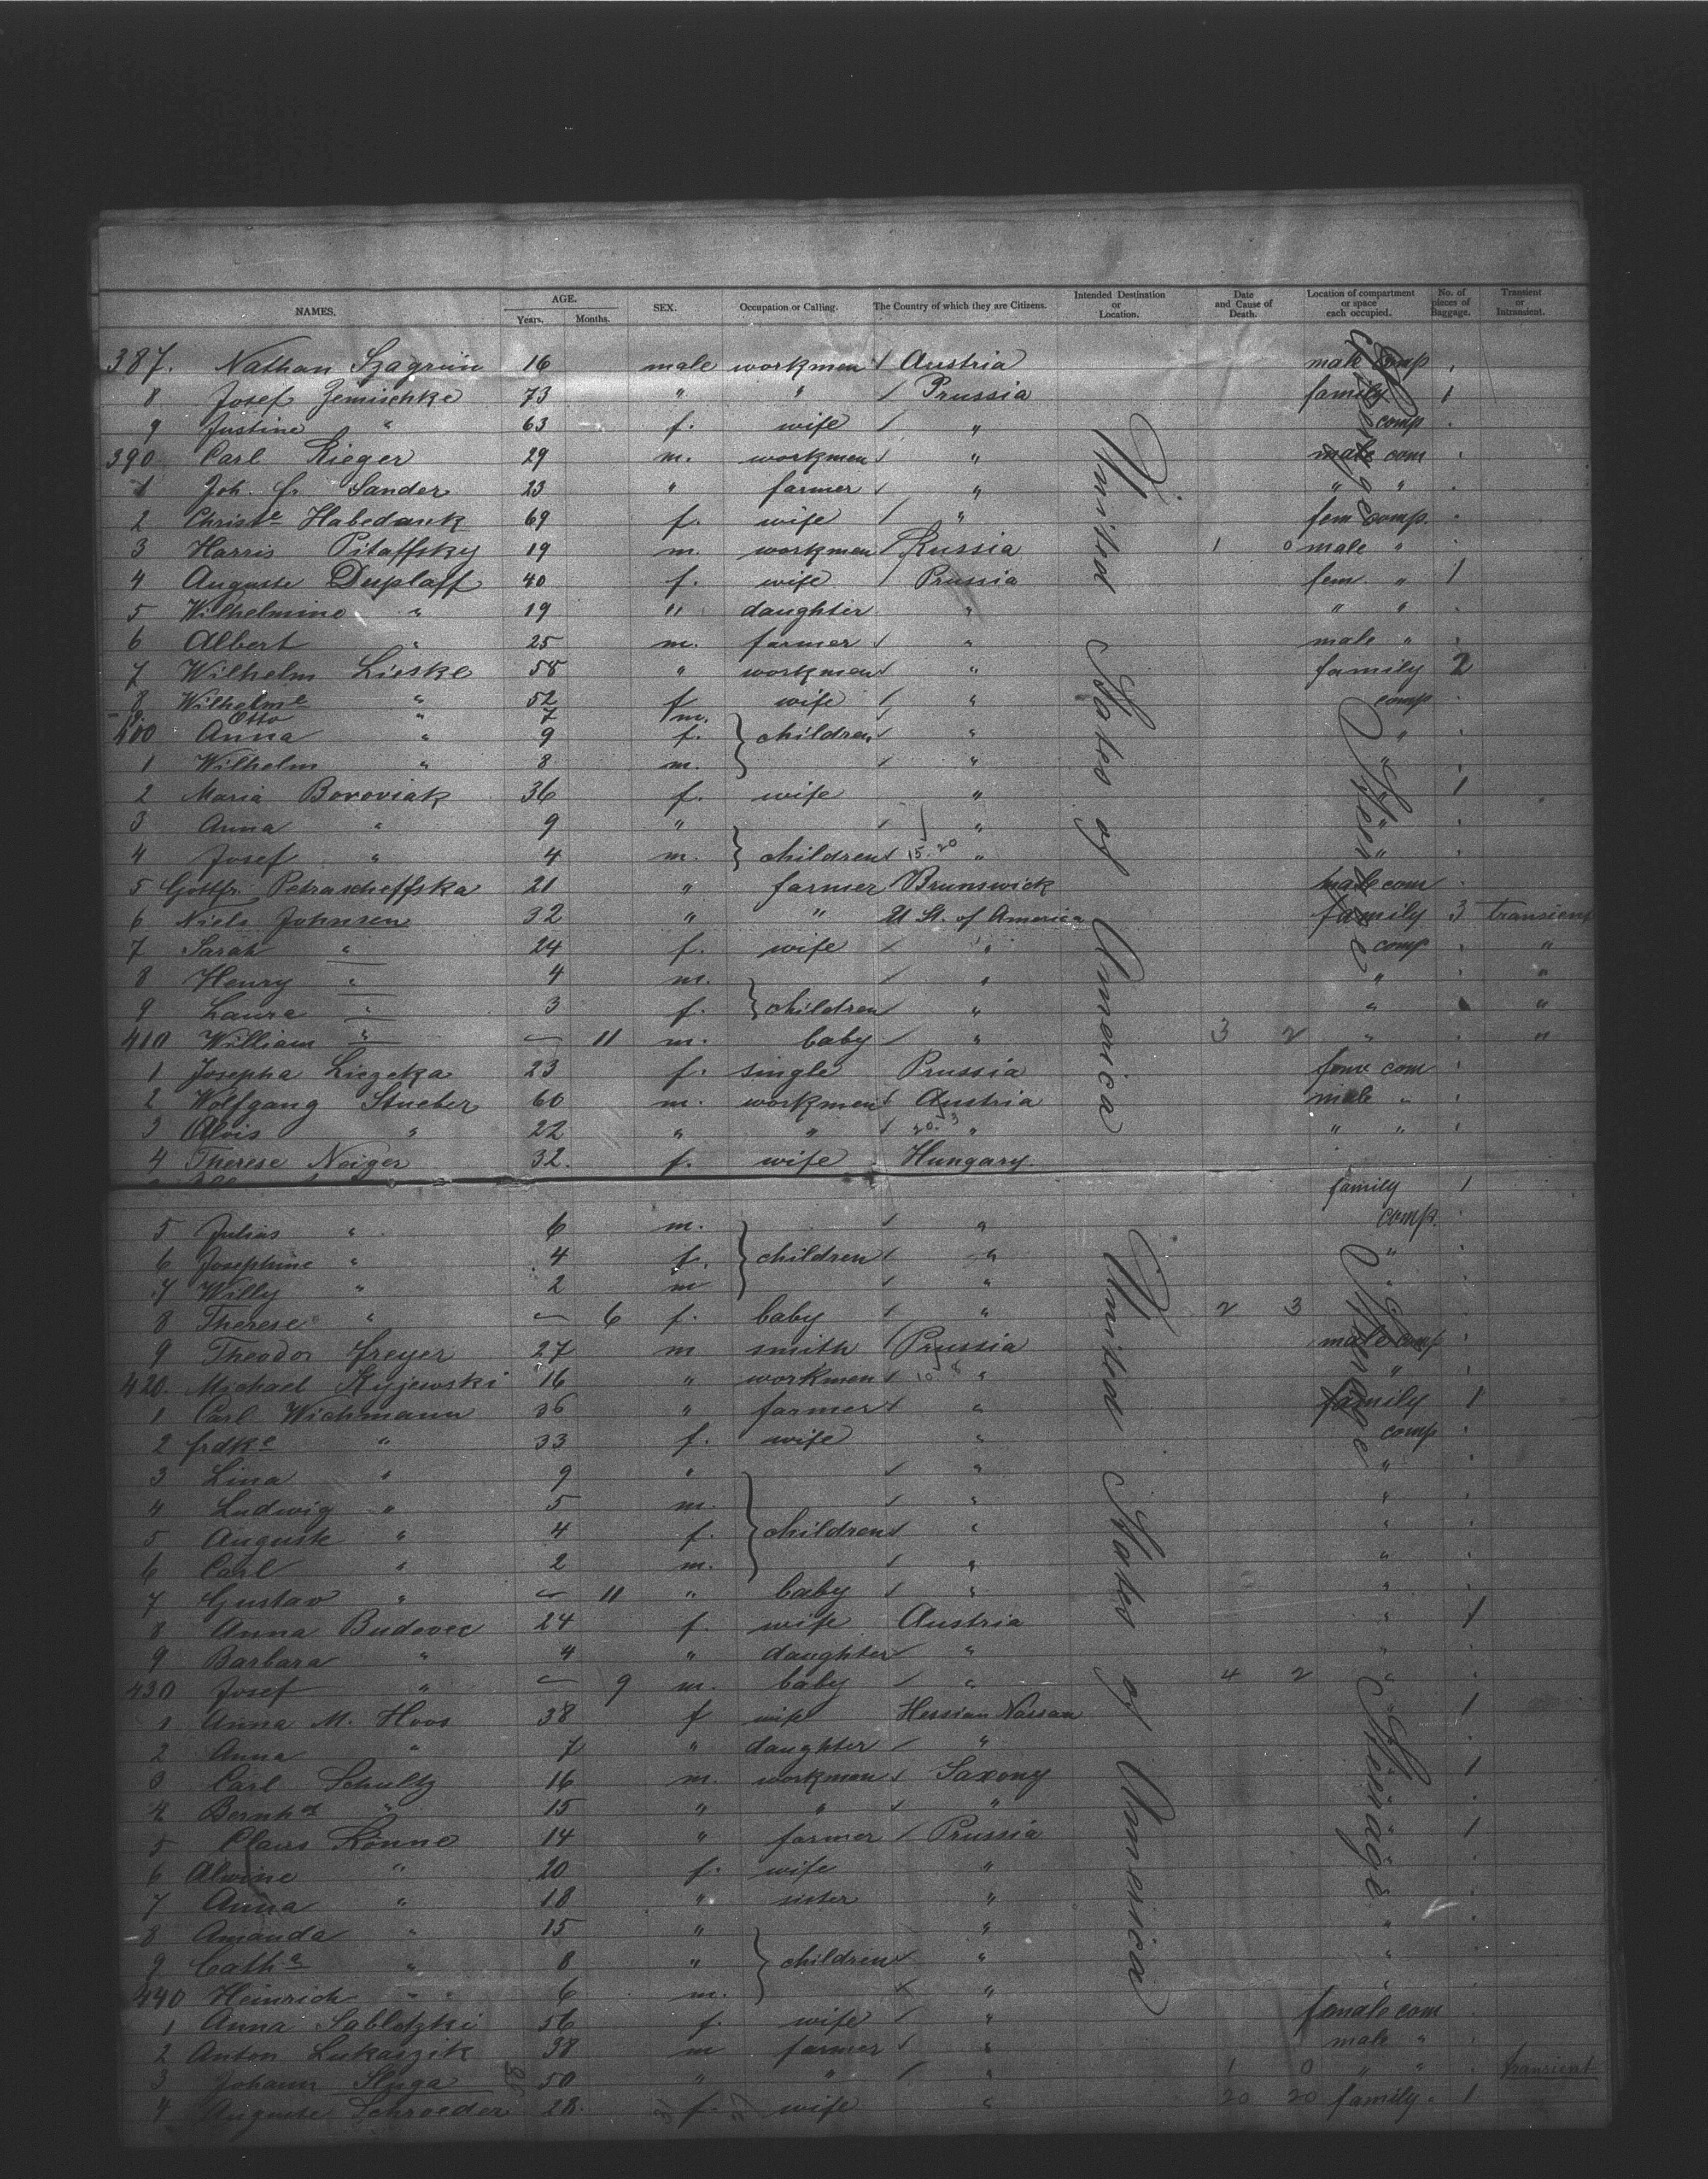 NAMES. AGE. Years. Months. SEX. Occupation or Calling. The Country of which they are Citizens. Intended Destination or Location. Date and Cause of Death. Location of compartment or space each occupied. No. of pieces of Baggage. Transient or Intransient.
387. Nathan Szagrün 16 male workman Austria male comp
8 Josef Zemischke 73 " " Prussia family 1
9 Justine " 63 f. wife " comp
390 Carl Rieger 29 m. workman " male com
1 Joh. Fr. Sander 23 " farmer " " "
2 Christe Habedank 69 f. wife " fem comp.
3 Harris Pitaffsky 19 m. workman Russia 1 0 male "
4 Auguste Desplaff 40 f. wife Prussia fem " 1
5 Wilhelmine " 19 " daughter " " "
6 Albert " 25 m. farmer " male "
7 Wilhelm Lieske 58 " workman " family 2
8 Wilhelme " 52 f wife " comp
Otto " 7 m.
400 Anna " 9 f. children " "
1 Wilhelm " 8 m. " "
2 Maria Boroviak 36 f. wife " " 1
3 Anna " 9 " " "
4 Josef " 4 m. children 15. 20 " "
5 Gottfr. Petrascheffska 21 " farmer Brunswick male com
6 Niels Johnsen 32 " " U St. of America family 3 transient
7 Sarah " 24 f. wife " comp "
8 Henry " 4 m. " " "
9 Laura " 3 f. children " " "
410 William " 11 m. baby " 3 2 " "
1 Josepha Liezeka 23 f. single Prussia fem com
2 Wolfgang Stueber 60 m. workman Austria male "
3 Alois " 22 " " 20. 3 " " "
4 Therese Neiger 32. f. wife Hungary.
family 1
5 Julius " 6 m. " comp.
6 Josephine " 4 f. children " "
7 Willy " 2 m " "
8 Therese " 6 f. baby " 2 3
9 Theodor Freyer 27 m smith Prussia male comp
420. Michael Kyjewski 16 " workman 10. 8 " "
1 Carl Wichmann 36 " farmer " family 1
2 Frdke " 33 f. wife " comp
3 Lina " 9 " " "
4 Ludwig " 5 m. " "
5 Auguste " 4 f. children " "
6 Carl " 2 m. " "
7 Gustav " 11 " baby " "
8 Anna Budovec 24 f. wife Austria " 1
9 Barbara " 4 " daughter " "
430 Josef " 9 m. baby " 4 2 "
1 Anna M. Hoos 38 f wife Hessian Nassau " 1
2 Anna " 7 " daughter "
3 Carl Schultz 16 m. workman Saxony 1
4 Bernhd " 15 " " "
5 Claus Rönne 14 " farmer Prussia " 1
6 Alwine " 20 f. wife "
7 Anna " 18 " sister "
8 Amanda " 15 " " "
9 Catha " 8 " children " "
440 Heinrich " 6 m. " "
1 Anna Sablotzki 56 f. wife " female com
2 Anton Lukaszik 38 m farmer " male "
3 Johann Sluga 50 " " " 1 0 " " transient
4 Auguste Schroeder 28. f. wife " 20 20 family. 1
United States of America
Steerage
Steerage
United States of America
Steerage
Steerage